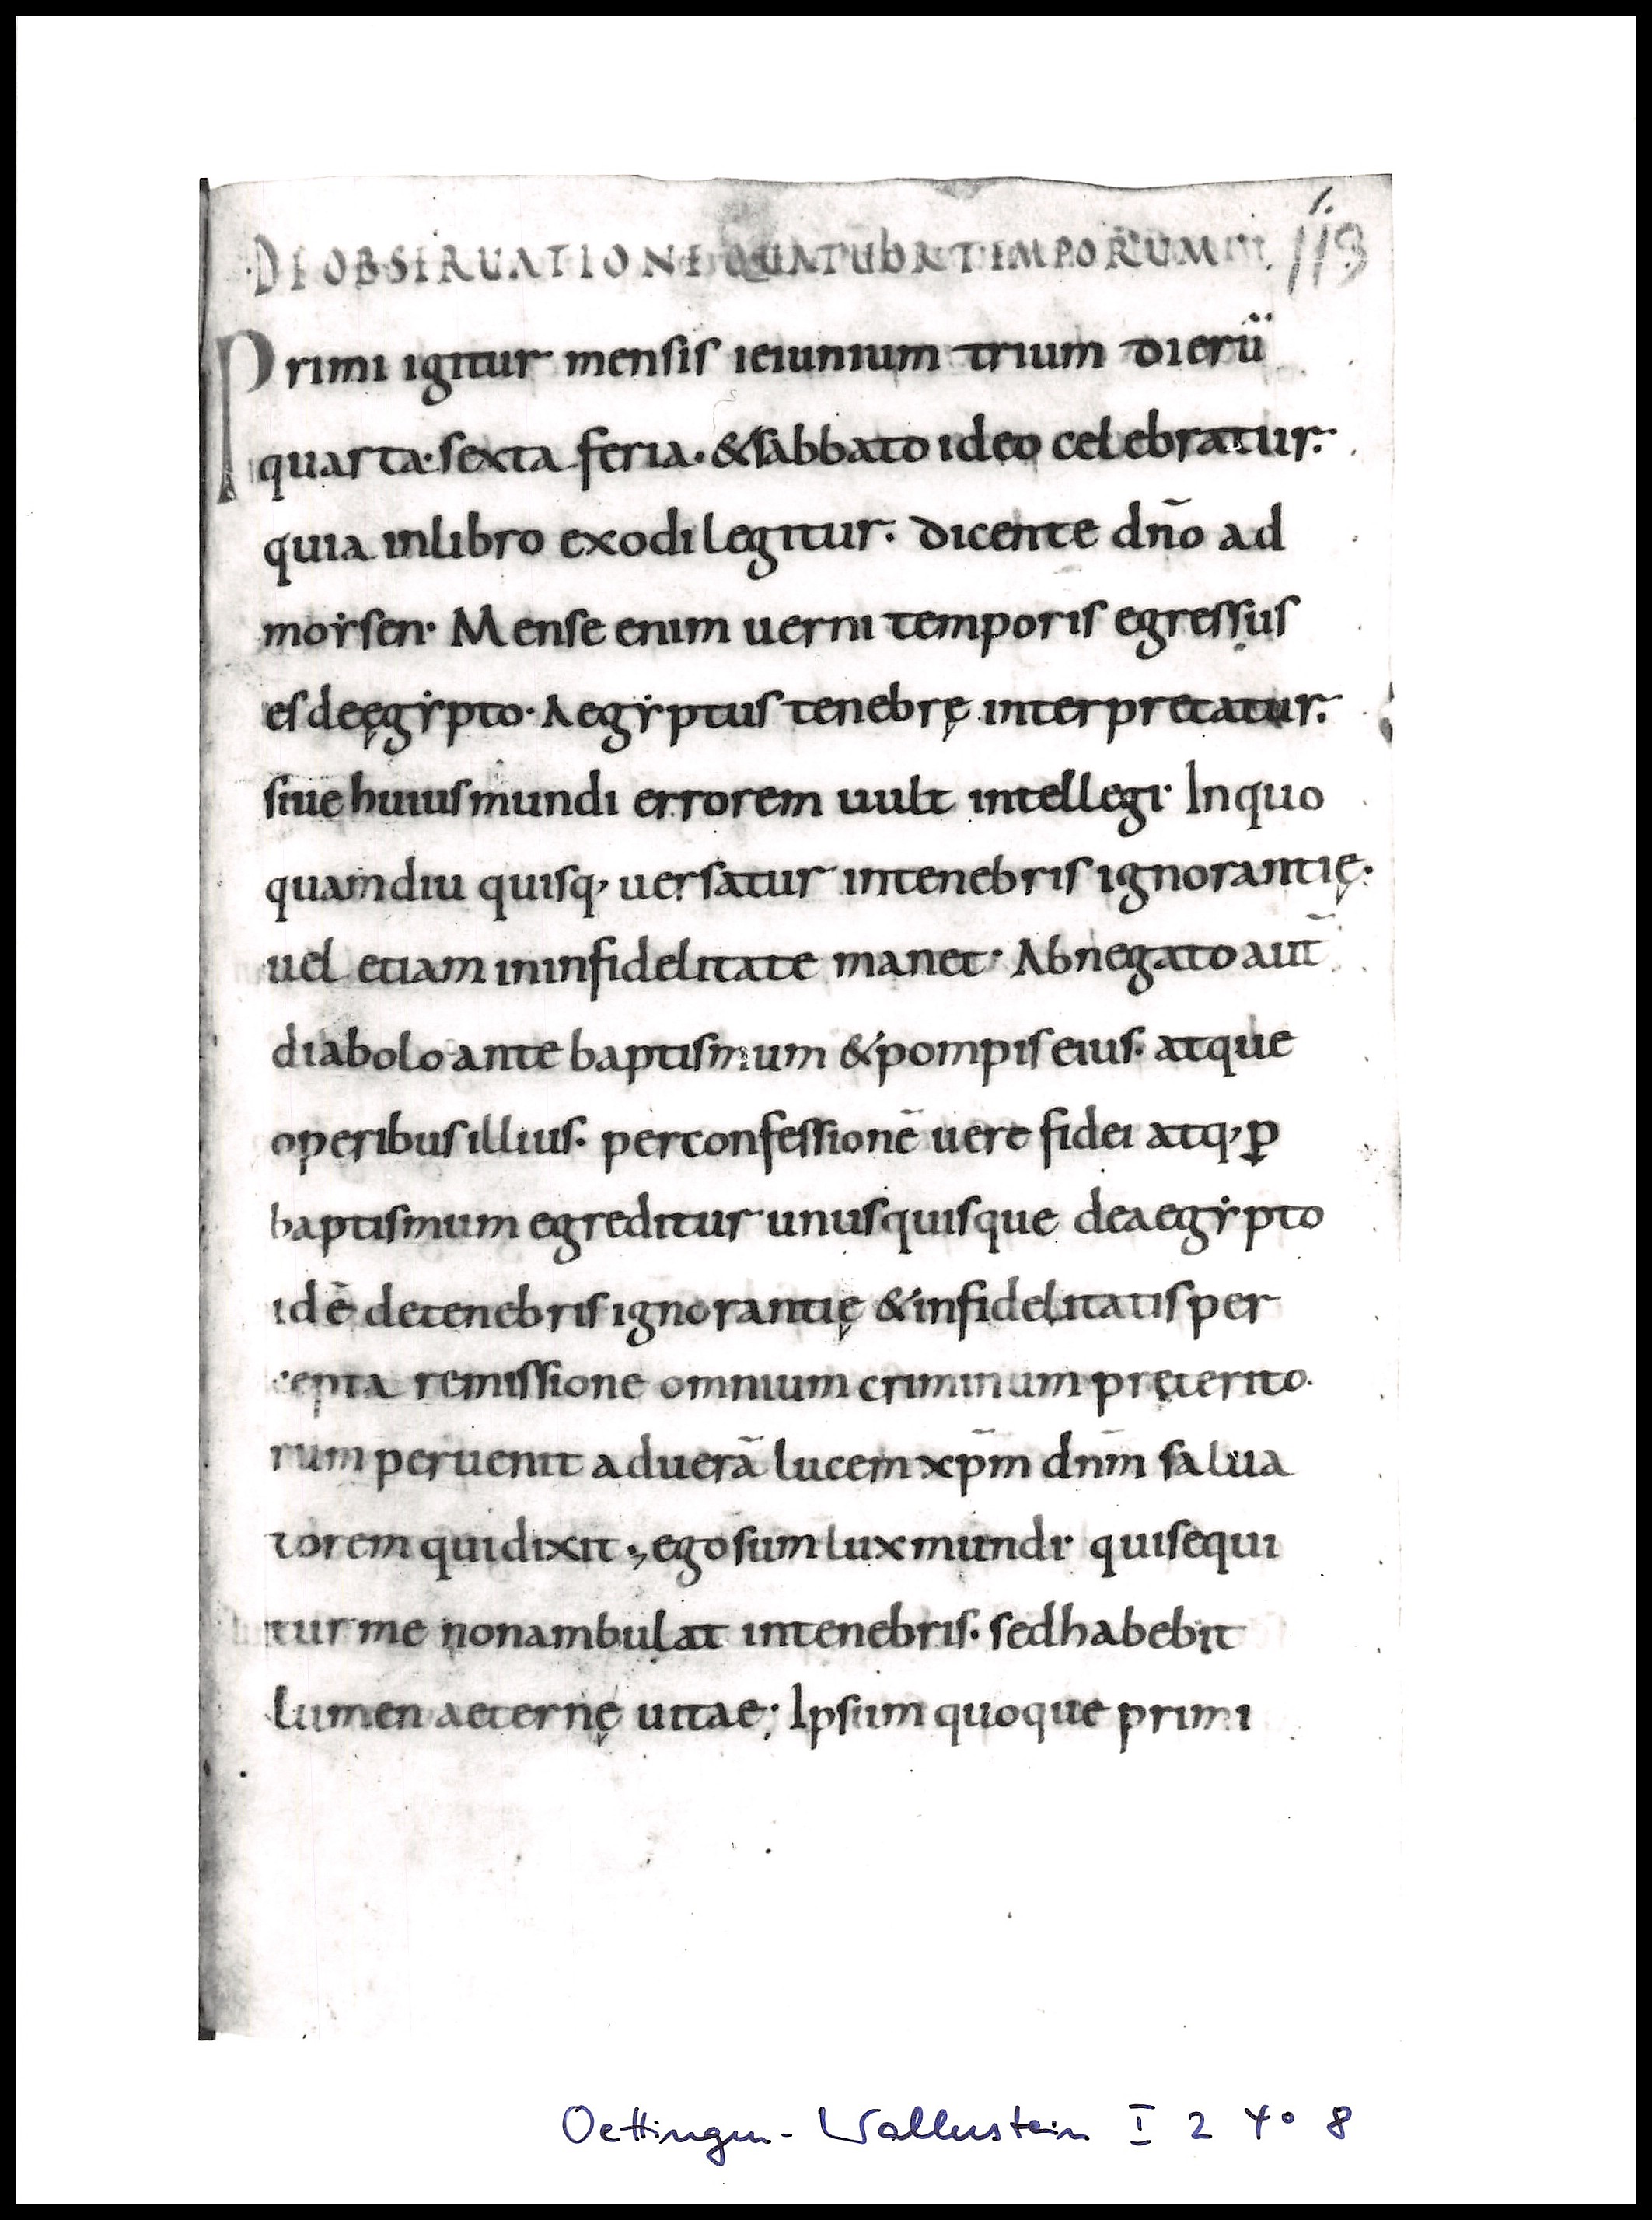 DE OBSERUATIONE QUATUOR TEMPORUM
113
Primi igitur mensis ieiunium trium dierū
quarta· sexta feria· & sabbato ideo celebratur·
quia inlibro exodi legitur· dicente dn̄o ad
moẏsen· Mense enim uerni temporis egressus
es deęgẏpto· Aegẏptus tenebrę interpretatur·
siue huius mundi errorem uult intellegi· In quo
quamdiu quisq, uersatur intenebris ignorantię·
uel etiam ininfidelitate manet· Abnegato aut̄
diabolo ante baptismum & pompis eius· atque
operibus illius· perconfessionē uere fidei atq, ꝑ
baptismum egreditur unusquisque deaegẏpto
id ē detenebris ignorantię & infidelitatis per
cepta remissione omnium criminum pręterito·
rum peruenit ad uerā lucem xp̄m dn̄m salua
torem qui dixit·, ego sum lux mundi· qui sequi
tur me non ambulat intenebris· sed habebit
lumen aeternę uitae; Ipsum quoque primi
Oettingen-Wallerstein I 2 4° 8